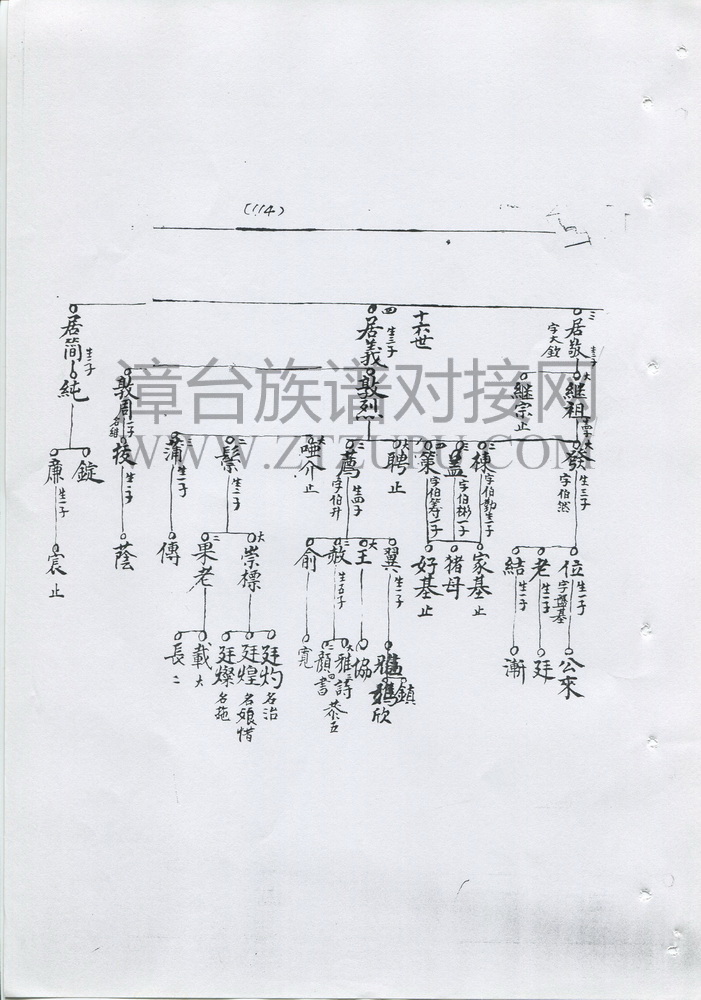 (114)
十六世
三 居敬 字大欽 生二子
四 居義 生三子
居簡 生子
大 繼祖
繼宗 止
敦烈
敦周
純
發 字伯然 生三子
棟 字伯勤 生一子
蓋 字伯彬 一子
策 字伯籌 一子
聘 止
薦 字伯升 生四子
介 止
鬃 生二子
蒲 生一子
技 生一子
錠
廉 生一子
位 字盤基 生一子
老 生一子
結 生一子
家基 止
猪母
好基 止
翼 生二子
王
赦 生五子
俞
大 崇標
二 果老
傳
蔭
宸 止
公來
廷
漸
鎮
欣
協
雅 詩
顏 書
恭 五
寬
廷灼 名治
廷煌 名娘惜
廷燦 名施
載 大
長 二
漳台族谱对接网
WWW.ZTZUPU.COM